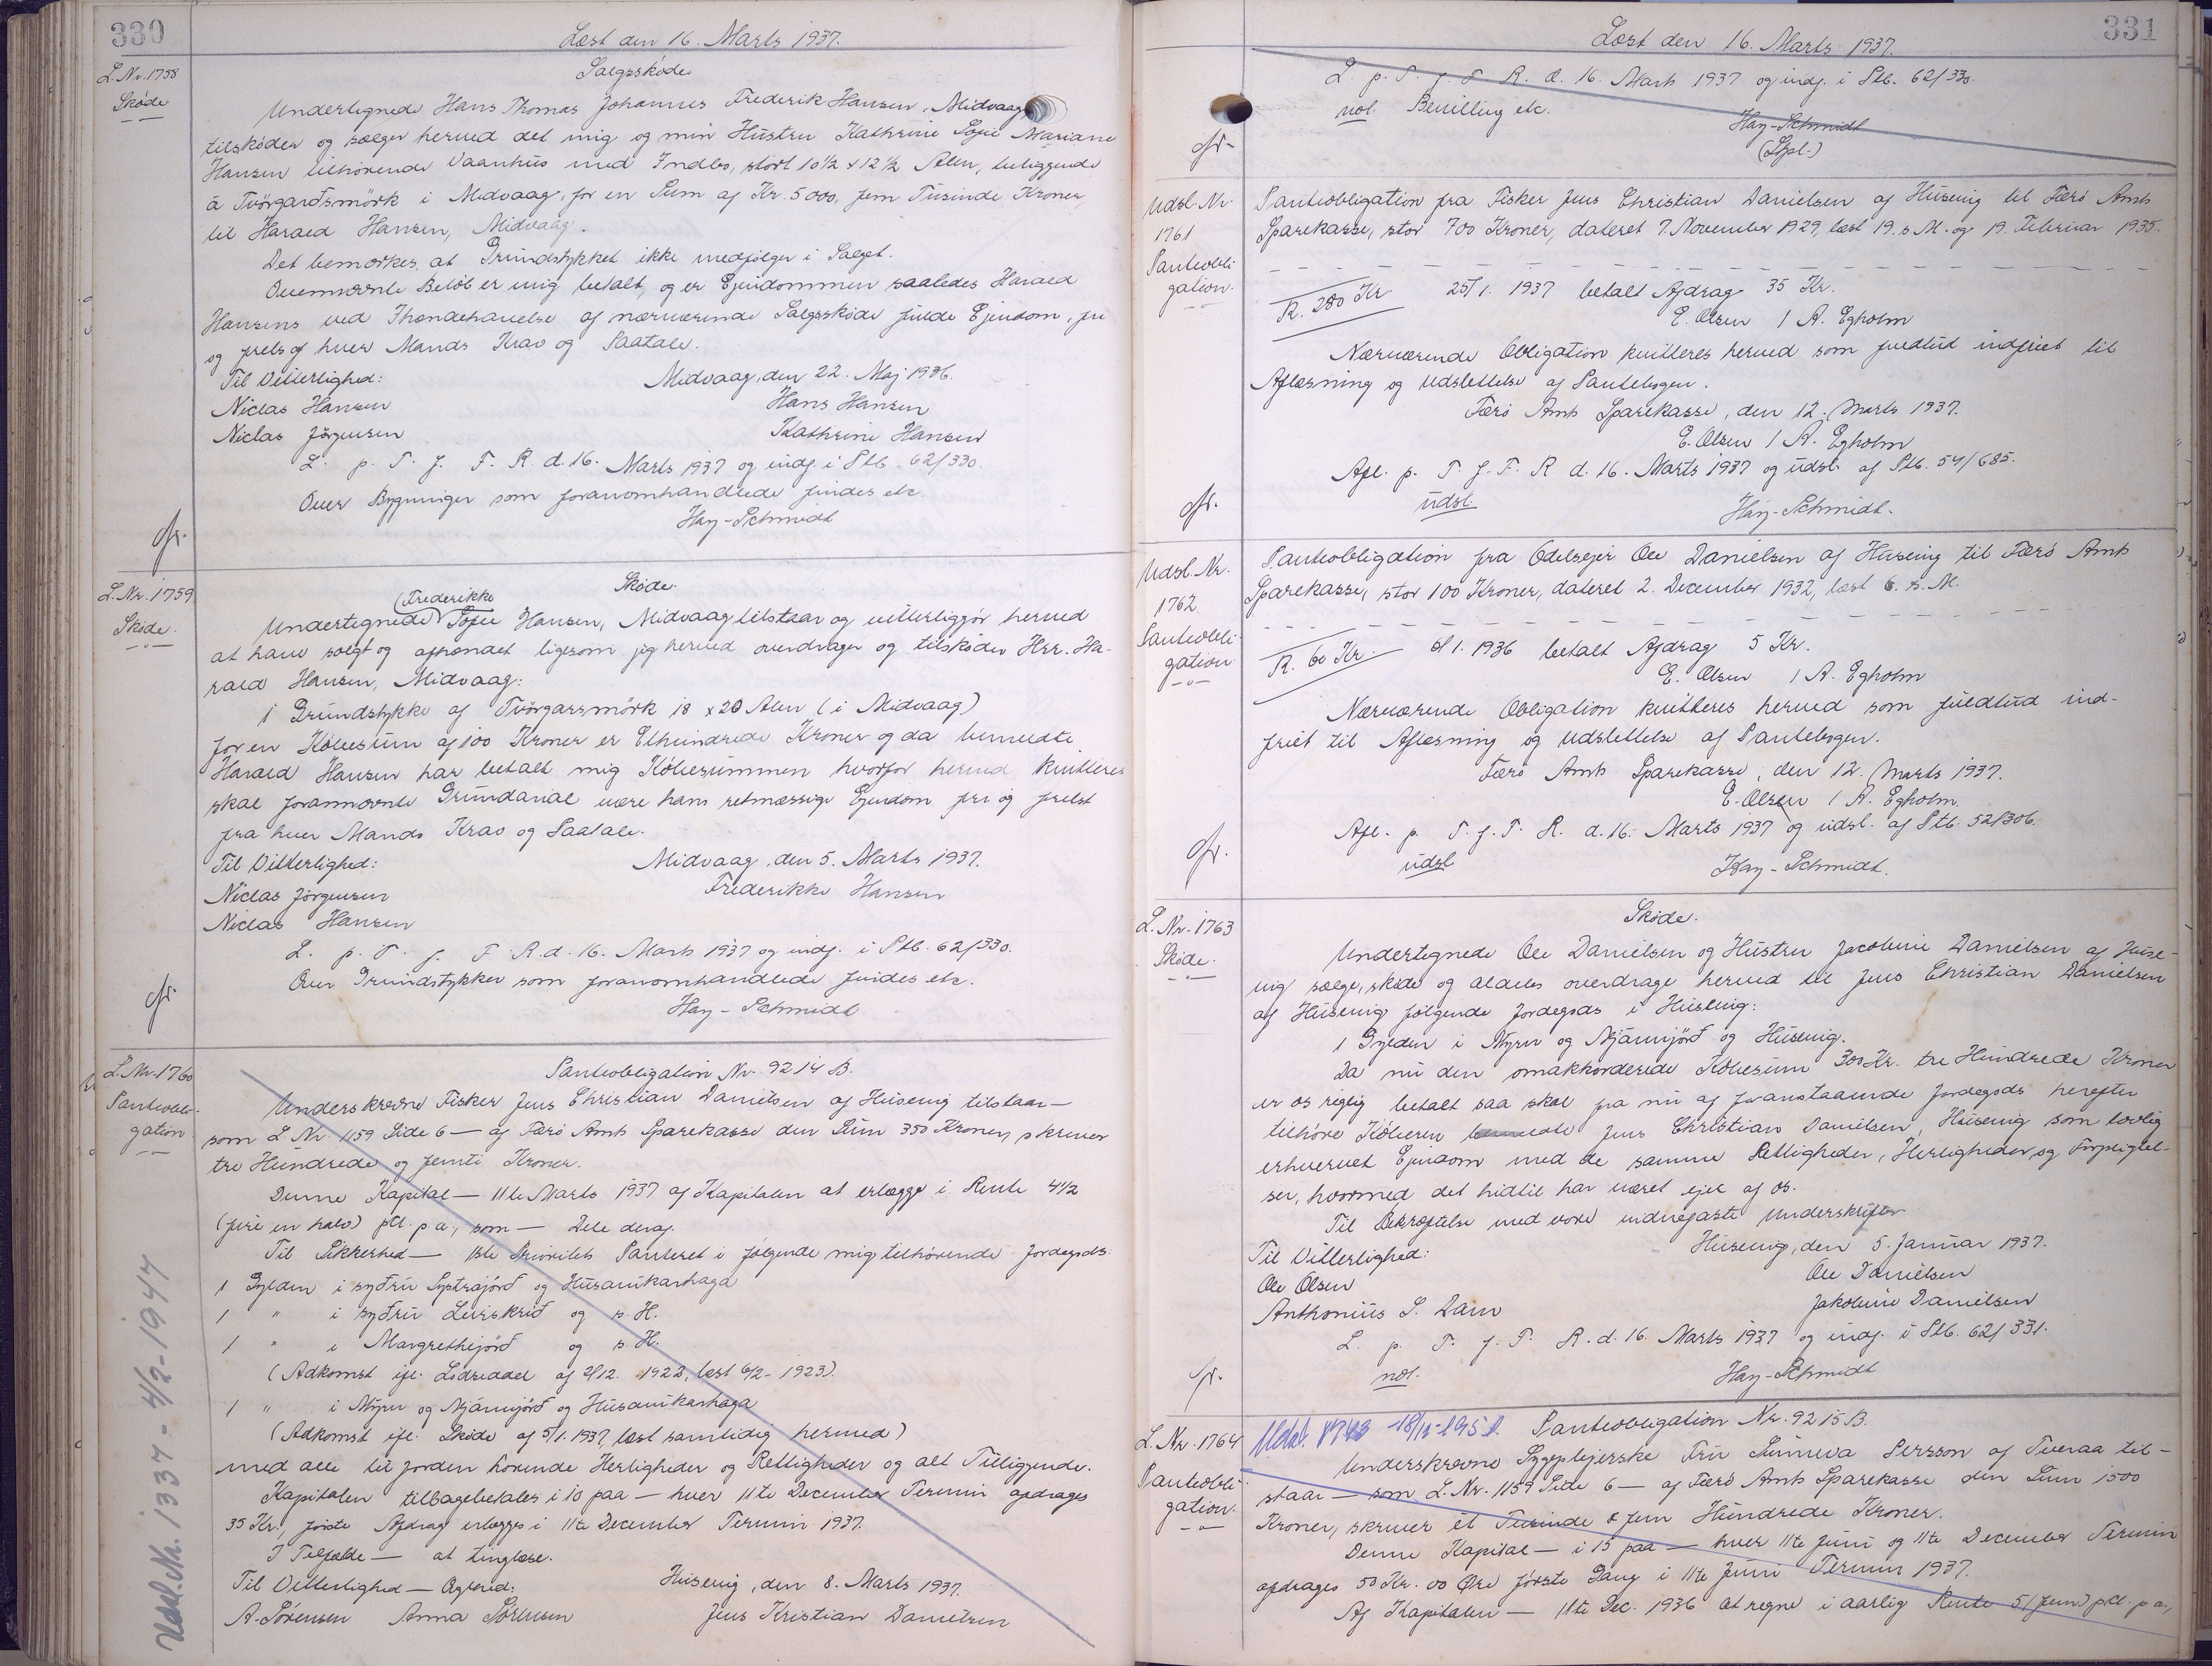 330
Læst den 16. Marts 1937.
L. Nr. 1758
Skøde
Salgsskøde
Undertegnede Hans Thomas Johannus Frederik Hansen, Midvaag
tilskøder og sælger herved det mig og min Hustru Kathrine Sofie Mariane
Hansen tilhørende Vaanhus med Indbo, stort 10½ x 12½ Alen, beliggende
á Tvörgarðsmörk i Midvaag, for en Sum af Kr. 5000, fem Tusinde Kroner
til Harald Hansen, Midvaag.
Det bemærkes, at Grundstykket ikke medfølger i Salget.
Ovennævnte Beløb er mig betalt, og er Ejendommen saaledes Harald
Hansens ved Ihændehavelse af nærværende Salgsskøde fulde Ejendom, fri
og frels af hver Mands Krav og Paatale.
Til Vitterlighed:
Midvaag, den 22. Maj 1936.
Niclas Hansen
Hans Hansen
Niclas Jörgensen
Kathrine Hansen
L. p. T. f. F. R. d. 16. Marts 1937 og indf. i Ptb. 62/330.
Over Bygninger som foranomhandlede findes etc.
Hay-Schmidt
L. Nr. 1759
Skøde.
Skøde.
(Frederikke
Undertegnede Sofie Hansen, Midvaag tilstaar og vitterliggør herved
at have solgt og afhændet ligesom jeg herved overdrager og tilskøder Hrr. Ha-
rald Hansen, Midvaag:
1 Grundstykke af Tvörgarsmörk 18 x 20 Alen (i Midvaag)
for en Købesum af 100 Kroner er Ethundrede Kroner og da bemeldte
Harald Hansen har betalt mig Købesummen hvorfor herved kvitteres
skal forannævnte Grundareal være hans retmæssige Ejendom fri og frelst
fra hver Mands Krav og Paatale.
Til Vitterlighed:
Midvaag, den 5. Marts 1937.
Niclas Jörgensen
Frederikke Hansen
Niclas Hansen
L. p. T. f. F. R. d. 16. Marts 1937 og indf. i Ptb. 62/330.
Over Grundstykker som foranomhandlede findes etc.
Hay-Schmidt
L. Nr. 1760
Panteobli-
gation
Panteobligation Nr. 9214 B.
Underskrevne Fisker Jens Christian Danielsen af Husevig tilstaar —
som L. Nr. 1159 Side 6 — af Færø Amts Sparekasse den Sum 350 Kroner, skriver
tre Hundrede og femti Kroner.
Denne Kapital — 11te Marts 1937 af Kapitalen at erlægge i Rente 4½
(fire en halv) pCt. p.a., som — Dele deraf.
Til Sikkerhed — 1ste Prioritets Panteret i følgende mig tilhørende Jordegods:
1 Gylden i syðru Systrajørð og Húsavíkarhaga
1 " i syðru Leirskrið og s. H.
1 " i Margrethijörð og s. H.
(Adkomst ifl. Lodseddel af 2/12. 1922, læst 6/2 - 1923).
1 " i Mýru og Mjáunjörð og Húsavíkarhaga
(Adkomst ifl. Skøde af 5/1. 1937, læst samtidig hermed)
med alle til Jorden hørende Herligheder og Rettigheder og alt Tilliggende.
Kapitalen tilbagebetales i 10 paa — hver 11te December Termin afdrages
35 Kr., første Afdrag erlægges i 11te December Termin 1937.
I Tilfælde — at tinglæse.
Til Vitterlighed — Agtved:
Husevig, den 8. Marts 1937.
A. Sörensen Anna Sörensen
Jens Kristian Danielsen
Udsl. Nr. 1337 - 4/2-1947
331
Læst den 16. Marts 1937.
L. p. T. f. F. R. d. 16. Marts 1937 og indf. i Ptb. 62/330.
not. Bevilling etc.
Hay-Schmidt
Udsl. Nr.
1761
Panteobli-
gation.
Panteobligation fra Fisker Jens Christian Danielsen af Husevig til Færø Amts
Sparekasse, stor 700 Kroner, dateret 7. November 1929, læst 19. s. M. og 19. Februar 1935.
R. 280 Kr.
25/1. 1937 betalt Afdrag 35 Kr.
E. Olsen / A. Egholm
Nærværende Obligation kvitteres herved som fuldtud indfriet til
Aflæsning og Udslettelse af Pantebogen.
Færø Amts Sparekasse, den 12. Marts 1937.
E. Olsen / A. Egholm
Afl. p. T. f. F. R. d. 16. Marts 1937 og udsl. af Ptb. 54/685.
udsl.
Hay-Schmidt.
Udsl. Nr.
1762
Panteobli-
gation
Panteobligation fra Odelsejer Ole Danielsen af Husevig til Færø Amts
Sparekasse, stor 100 Kroner, dateret 2. December 1932, læst 6. s. M.
R. 60 Kr.
1. 1936 betalt Afdrag 5 Kr.
E. Olsen / A. Egholm
Nærværende Obligation kvitteres herved som fuldtud ind-
friet til Aflæsning og Udslettelse af Pantebogen.
Færø Amts Sparekasse, den 12. Marts 1937.
E. Olsen / A. Egholm.
Afl. p. T. f. F. R. d. 16. Marts 1937 og udsl. af Ptb. 52/306.
udsl.
Hay-Schmidt.
L. Nr. 1763
Skøde.
Skøde.
Undertegnede Ole Danielsen og Hustru Jacobine Danielsen af Huse-
vig sælge, skøde og aldeles overdrage herved til Jens Christian Danielsen
af Husevig følgende Jordegods i Husevig:
1 Gylden i Mýru og Mjáunjörð og Husevig.
Da nu den omakkorderede Købesum 300 Kr. tre Hundrede Kroner
er os rigtig betalt saa skal fra nu af foranstaaende Jordegods herefter
tilhøre Køberen bemeldte Jens Christian Danielsen, Husevig som lovlig
erhvervet Ejendom med de samme Rettigheder, Herligheder, og Forpligtel-
ser, hvormed det hidtil har været ejet af os.
Til Bekræftelse med vore vidnefaste Underskrifter
Til Vitterlighed:
Husevig, den 5. Januar 1937.
Ole Olsen
Ole Danielsen
Anthonius S. Dam
Jakobine Danielsen
L. p. T. f. F. R. d. 16. Marts 1937 og indf. i Ptb. 62/331.
not.
Hay-Schmidt
L. Nr. 1764
Panteobli-
gation.
Panteobligation Nr. 9215 B.
Underskrevne Sygeplejerske Fru Sunneva Persson af Tveraa til-
staar — som L. Nr. 1159 Side 6 — af Færø Amts Sparekasse den Sum 1500
Kroner, skriver et Tusinde & fem Hundrede Kroner.
Denne Kapital — i 15 paa — hver 11te Juni og 11te December Termin
afdrages 50 Kr. 00 Øre første Gang i 11te Juni Termin 1937.
Af Kapitalen — 11te Dec. 1936 at regne i aarlig Rente 5 (fem) pCt. p.a.,